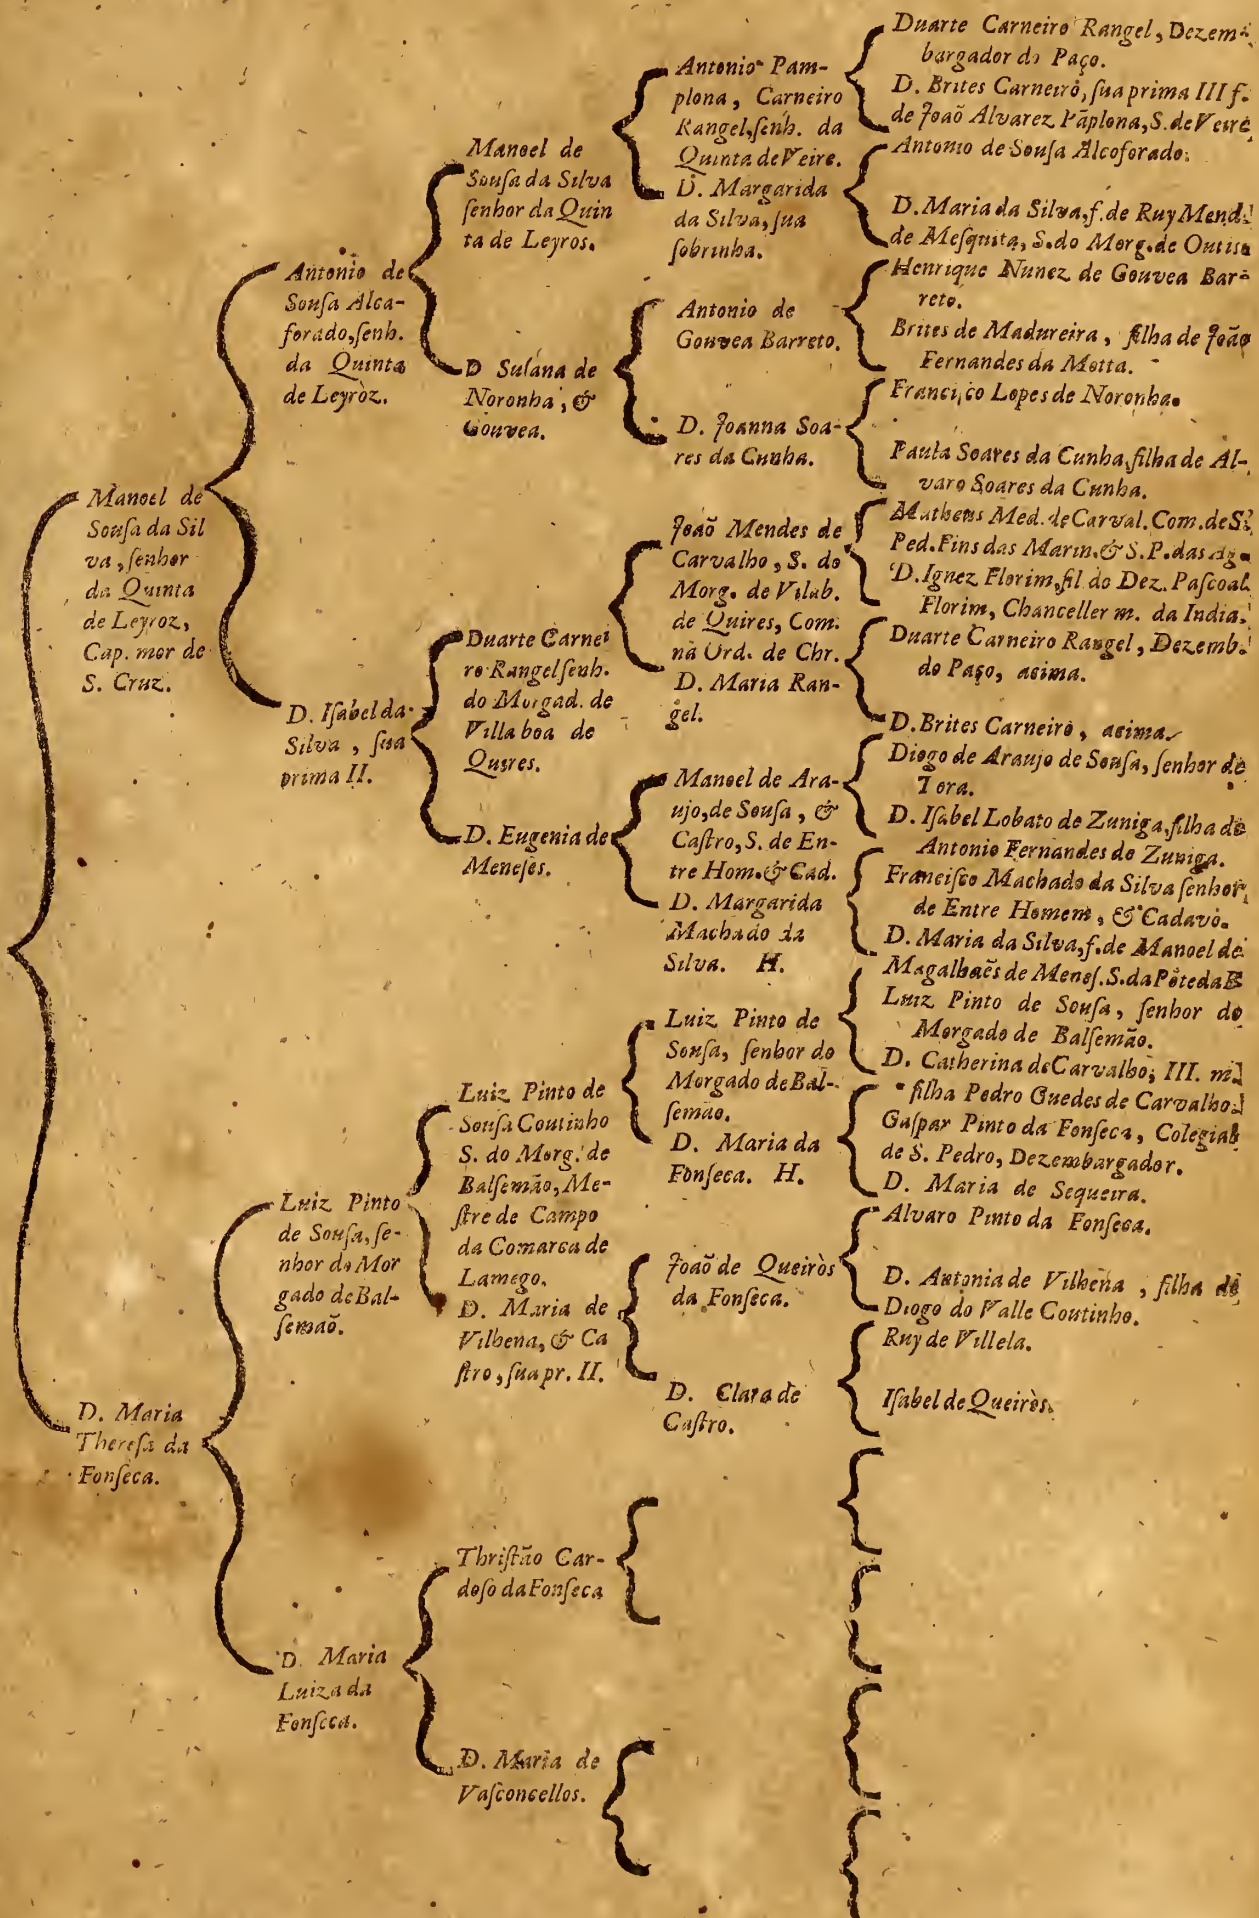 Manoel de
Souſa da Sil
va, ſenhor
da Quinta
de Leyroz,
Cap. mor de
S. Cruz.
D. Maria
Thereſa da
Fonſeca.
Antonio de
Souſa Alca-
forado, ſenh.
da Quinta
de Leyròz.
D. Iſabel da
Silva, ſua
prima II.
Luiz Pinto
de Souſa, ſe-
nhor do Mor
gado de Bal-
ſemaõ.
D. Maria
Luiza da
Fonſeca.
Manoel de
Souſa da Silva
ſenhor da Quin
ta de Leyros.
D Suſana de
Noronha, &
Gouvea.
Duarte Carnei
ro Rangel ſenh.
do Morgad. de
Villa boa de
Quires.
D. Eugenia de
Meneſes.
Luiz Pinto de
Souſa Coutinho
S. do Morg. de
Balſemão, Me-
ſtre de Campo
da Comarca de
Lamego.
D. Maria de
Vilhena, & Ca
ſtro, ſua pr. II.
Thriſtão Car-
doſo da Fonſeca
D. Maria de
Vaſconcellos.
Antonio Pam-
plona, Carneiro
Rangel, ſenh. da
Quinta de Veire.
D. Margarida
da Silva, ſua
ſobrinha.
Antonio de
Gouvea Barreto.
D. Joanna Soa-
res da Cunha.
Joaõ Mendes de
Carvalho, S. do
Morg. de Vilab.
de Quires, Com.
na Ord. de Chr.
D. Maria Ran-
gel.
Manoel de Ara-
ujo, de Souſa, &
Caſtro, S. de En-
tre Hom. & Cad.
D. Margarida
Machado da
Silva. H.
Luiz Pinto de
Souſa, ſenhor do
Morgado de Bal-
ſemão.
D. Maria da
Fonſeca. H.
Joaõ de Queiròs
da Fonſeca.
D. Clara de
Caſtro.
Duarte Carneiro Rangel, Dezem-
bargador do Paço.
D. Brites Carneirò, ſua prima III f.
de Joaõ Alvarez Pãplona, S. de Veire
Antonio de Souſa Alcoforado.
D. Maria da Silva, f. de Ruy Mend.
de Meſquita, S. do Morg. de Outis
Henrique Nunez de Gouvea Bar-
reto.
Brites de Madureira, filha de João
Fernandes da Motta.
Franciſco Lopes de Noronha.
Paula Soares da Cunha, filha de Al-
varo Soares da Cunha.
Matheus Med. de Carval. Com. de S.
Ped. Fins das Marin. & S. P. das Ag.
D. Ignez Florim, fil do Dez. Paſcoal
Florim, Chanceller m. da India.
Duarte Carneiro Rangel, Dezemb.
do Paço, acima.
D. Brites Carneiro, acima.
Diogo de Araujo de Souſa, ſenhor de
Tora.
D. Iſabel Lobato de Zuniga, filha de
Antonio Fernandes de Zuniga.
Franciſco Machado da Silva ſenhor
de Entre Homem, & Cadavo.
D. Maria da Silva, f. de Manoel de
Magalhaẽs de Meneſ. S. da Põte da B
Luiz Pinto de Souſa, ſenhor do
Morgado de Balſemão.
D. Catherina de Carvalho, III. m.
filha Pedro Guedes de Carvalho.
Gaſpar Pinto da Fonſeca, Colegial
de S. Pedro, Dezembargador.
D. Maria de Sequeira.
Alvaro Pinto da Fonſeca.
D. Antonia de Vilhena, filha de
Diogo do Valle Coutinho.
Ruy de Villela.
Iſabel de Queiròs.